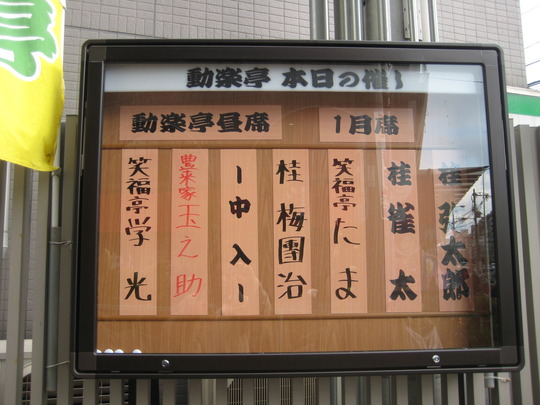 動楽亭 本日の催し
動楽亭昼席
1月席
桂 弥太郎
桂 雀太
笑福亭たま
桂 梅團治
ー中入ー
豊来家玉之助
笑福亭学光
亭